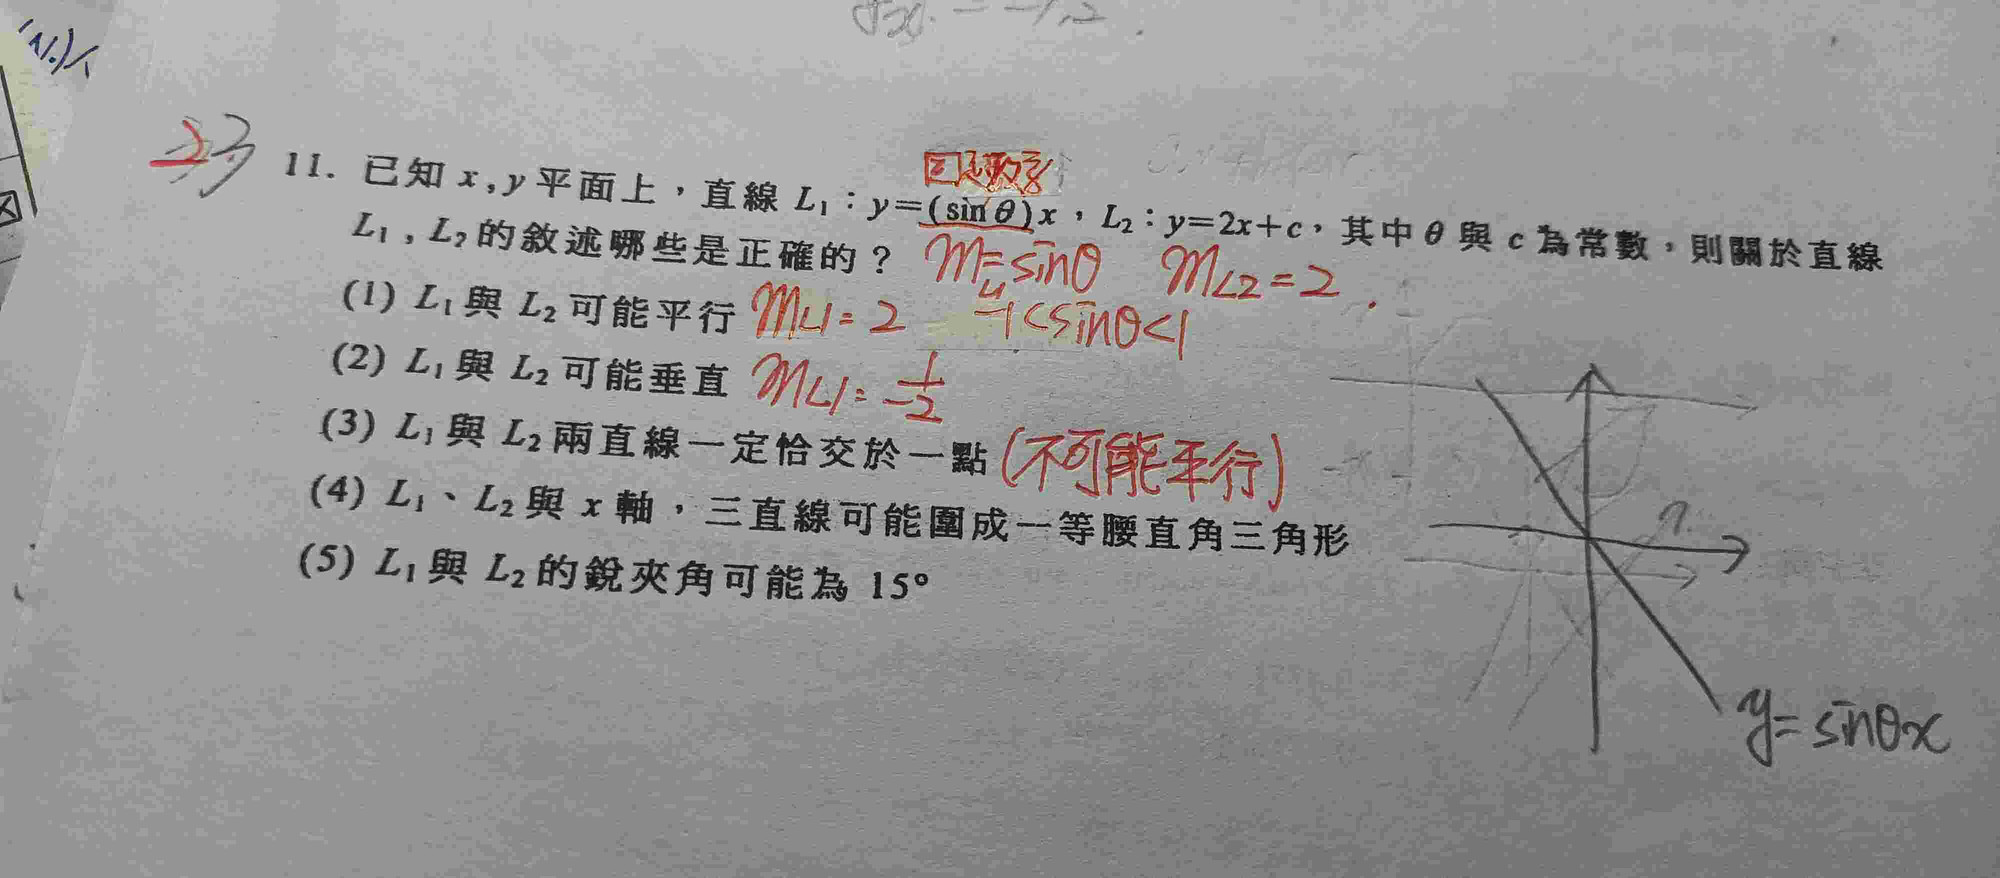 23
11. 已知 x,y 平面上，直線 L₁：y=(sinθ)x，L₂：y=2x+c，其中θ與 c 為常數，則關於直線
L₁,L₂的敘述哪些是正確的？ m_L1=sinθ m_L2=2
(1) L₁與 L₂可能平行 m_L1=2 -1<sinθ<1
(2) L₁與 L₂可能垂直 m_L1=-1/2
(3) L₁與 L₂兩直線一定恰交於一點 (不可能平行)
(4) L₁、L₂與 x 軸，三直線可能圍成一等腰直角三角形
(5) L₁與 L₂的銳夾角可能為 15°
y=sinθx